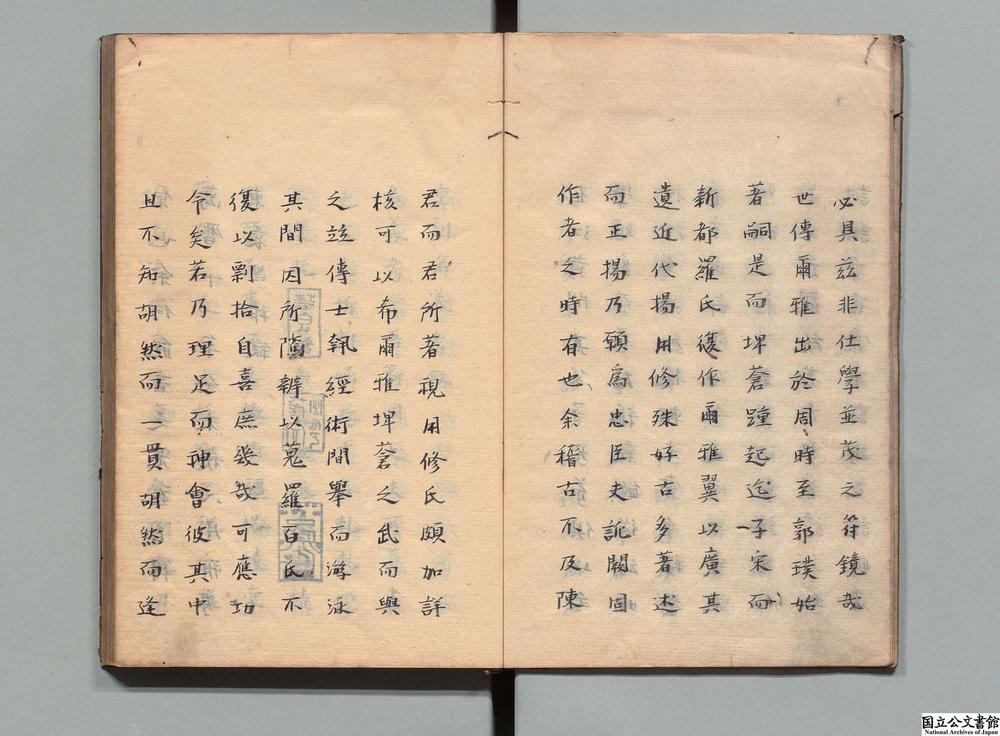 必具茲非仕學並茂之符鏡哉
世傳爾雅出於周時至郭璞始
著嗣是而埤蒼踵起迄于宋而
新都羅氏復作爾雅翼以廣其
遺近代揚用修殊好古多著述
而正揚乃願為忠臣夫訛闕固
作者之時有也余稽古不及陳
君而君所著視用修氏頗加詳
核可以希爾雅埤蒼之武而與
之竝傳士執經術間舉而游泳
其間因所隲辨以蒐羅百氏不
復以剽拾自喜庶幾哉可應功
令矣若乃理足而神會彼其中
且不知胡然而一貫胡然而逢
国立公文書館
National Archives of Japan